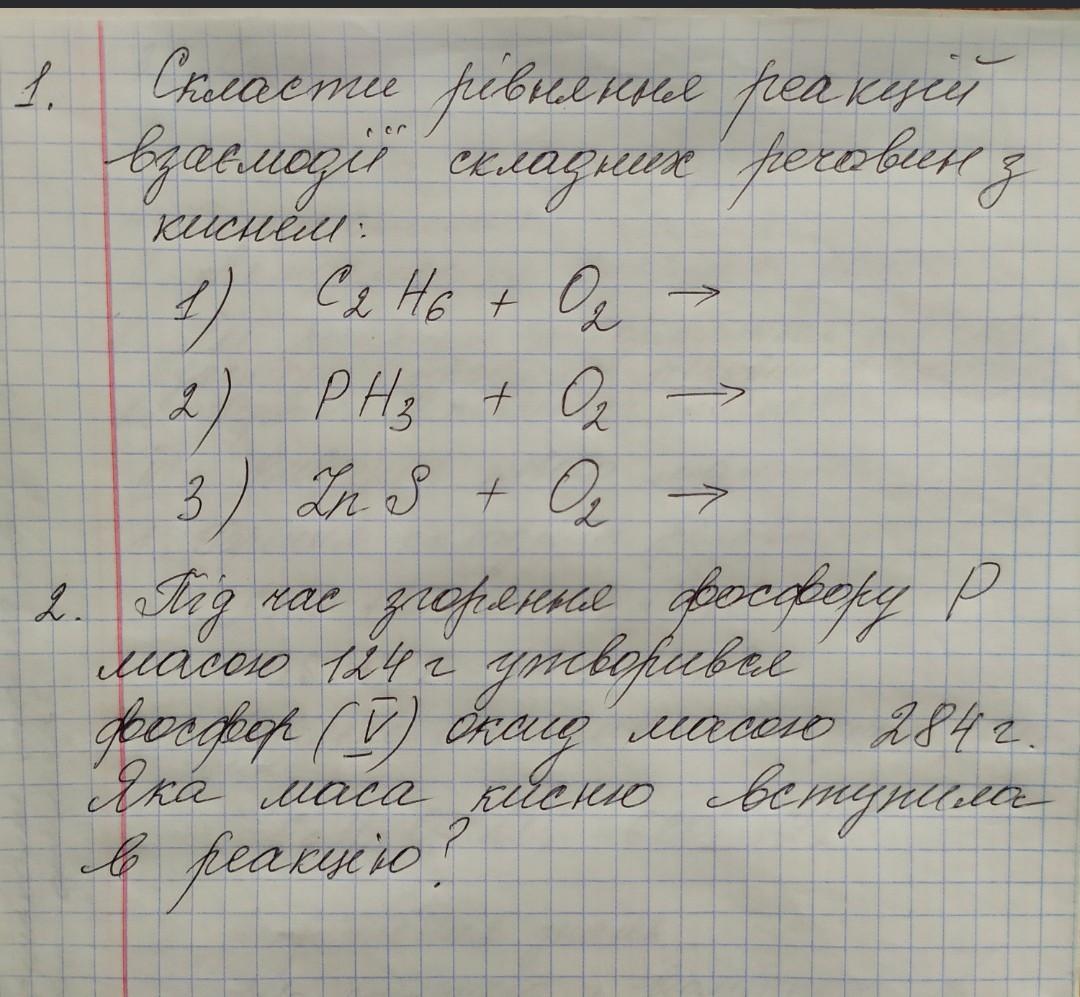 1. Скласти рівняння реакцій
взаємодії складних речовин з
киснем:
1) C₂H₆ + O₂ →
2) PH₃ + O₂ →
3) ZnS + O₂ →
2. Під час згоряння фосфору P
масою 124 г утворився
фосфор (V) оксид масою 284 г.
Яка маса кисню вступила
в реакцію?